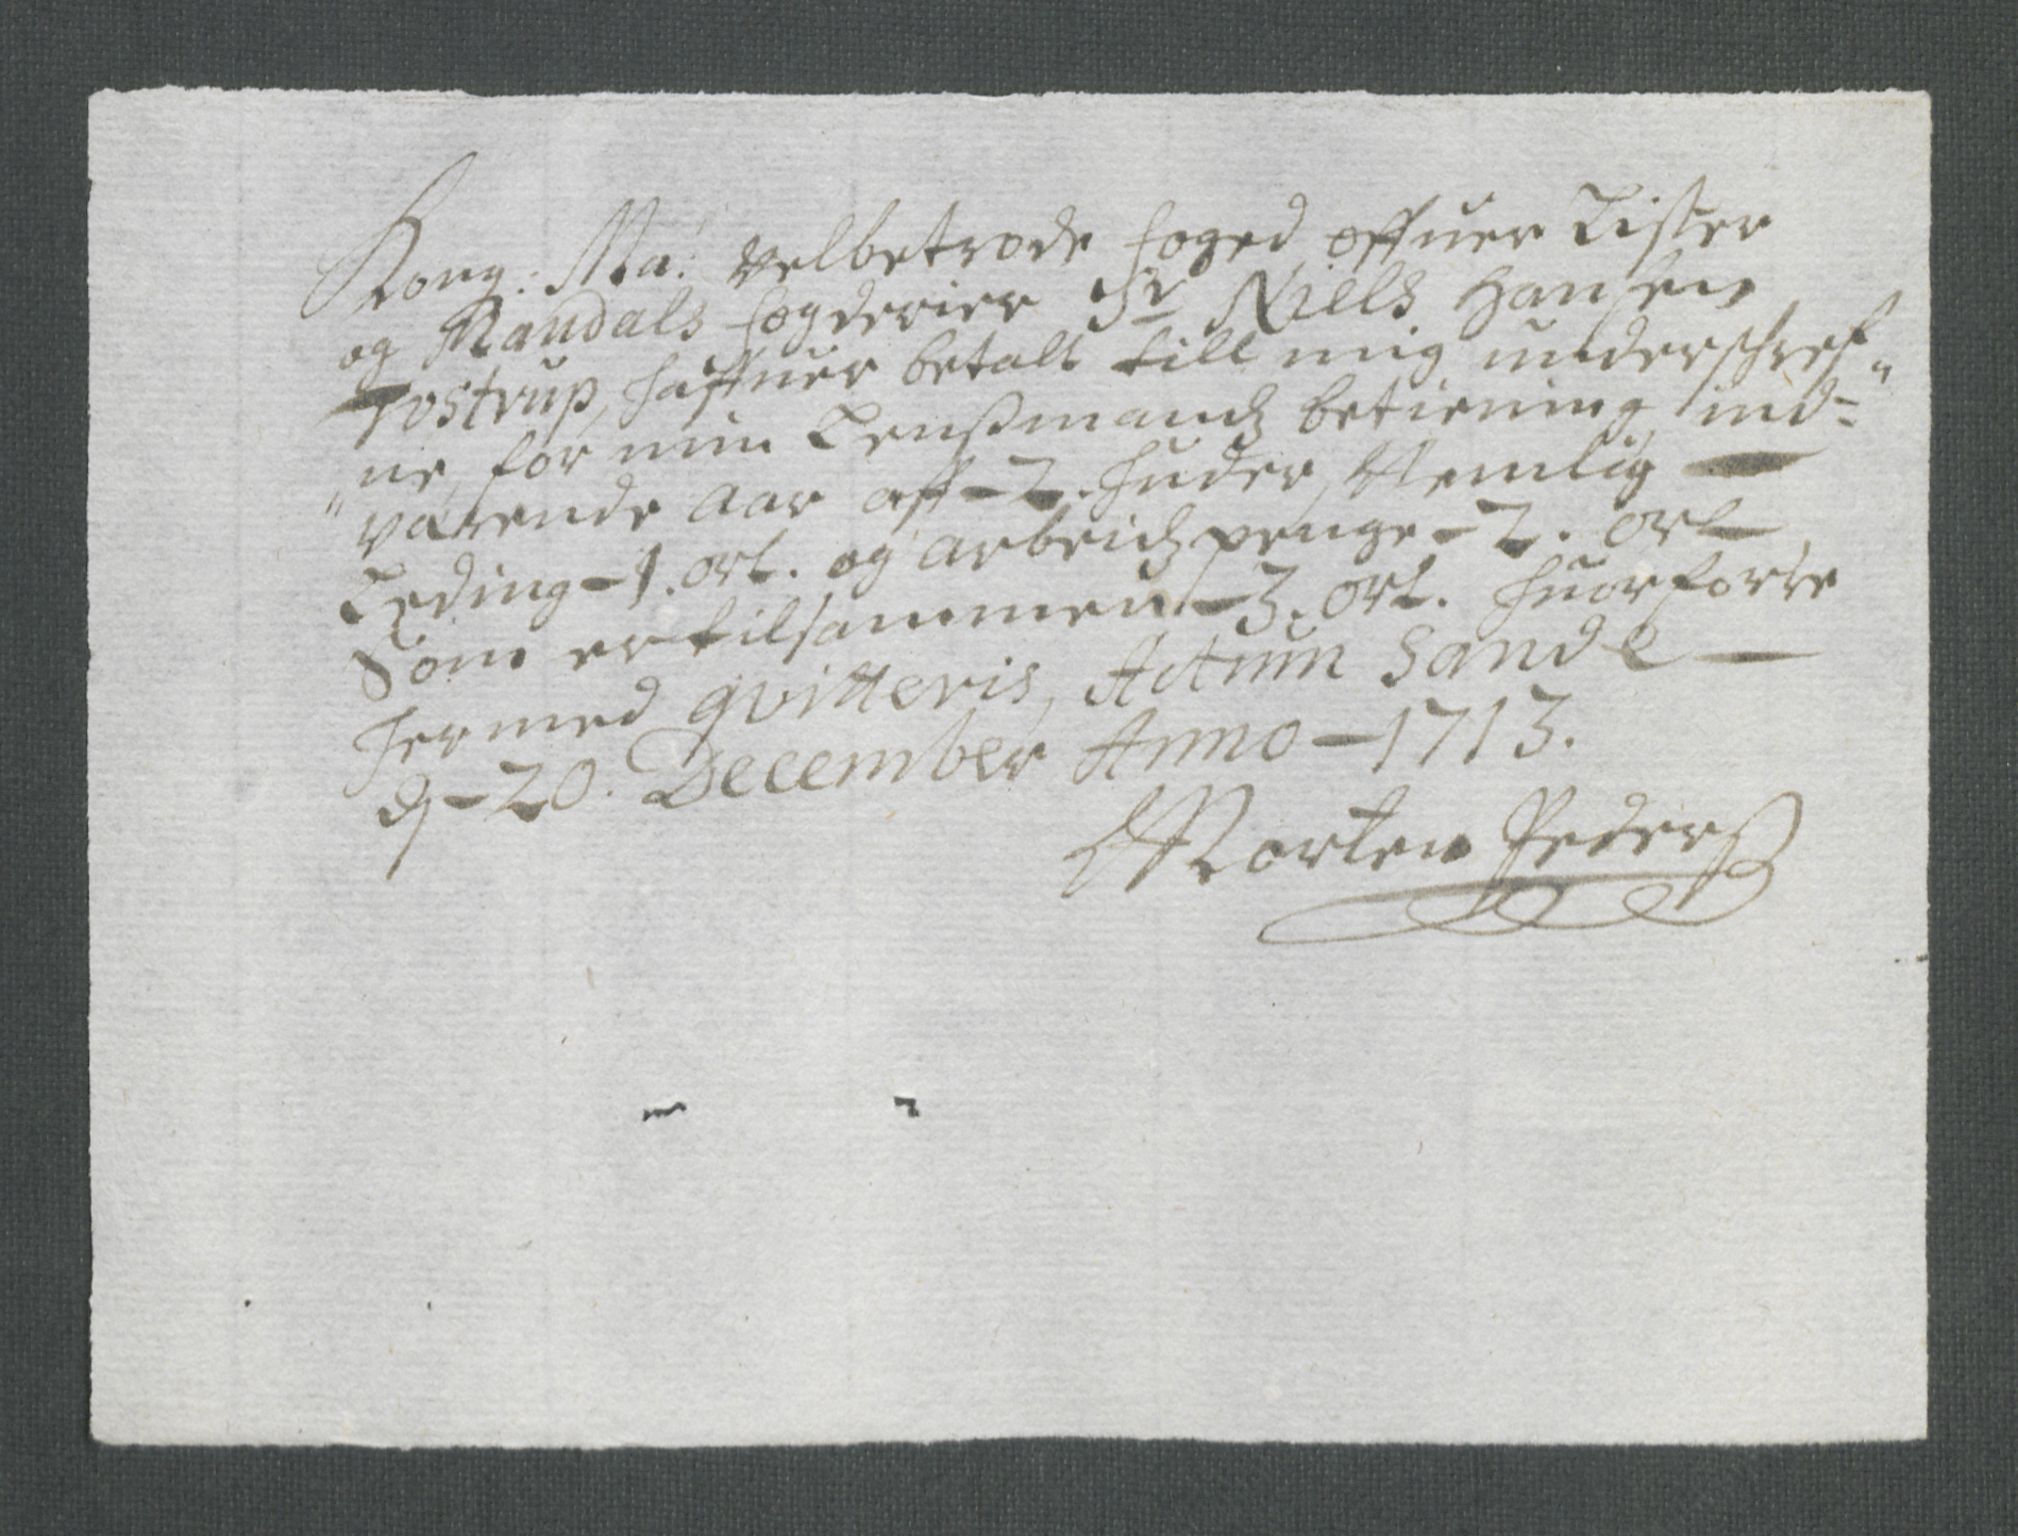 Kong: Ma: velbetrode foged offuer Lister
og Mandals fogderier Sr Niels Hansen
Tostrup, haffuer betalt till mig underschref„
„ne, for min Lensmandz betiening ind-
værende aar aff - 2. huder, Nemlig —
Leding - 1. ort. og arbeidz penge - 2. ort
Som er tilsammen - 3. ort. huorforre
hermed qvitteris, Actum Sande —
dj - 20. December Anno - 1713.
Morten Pederß